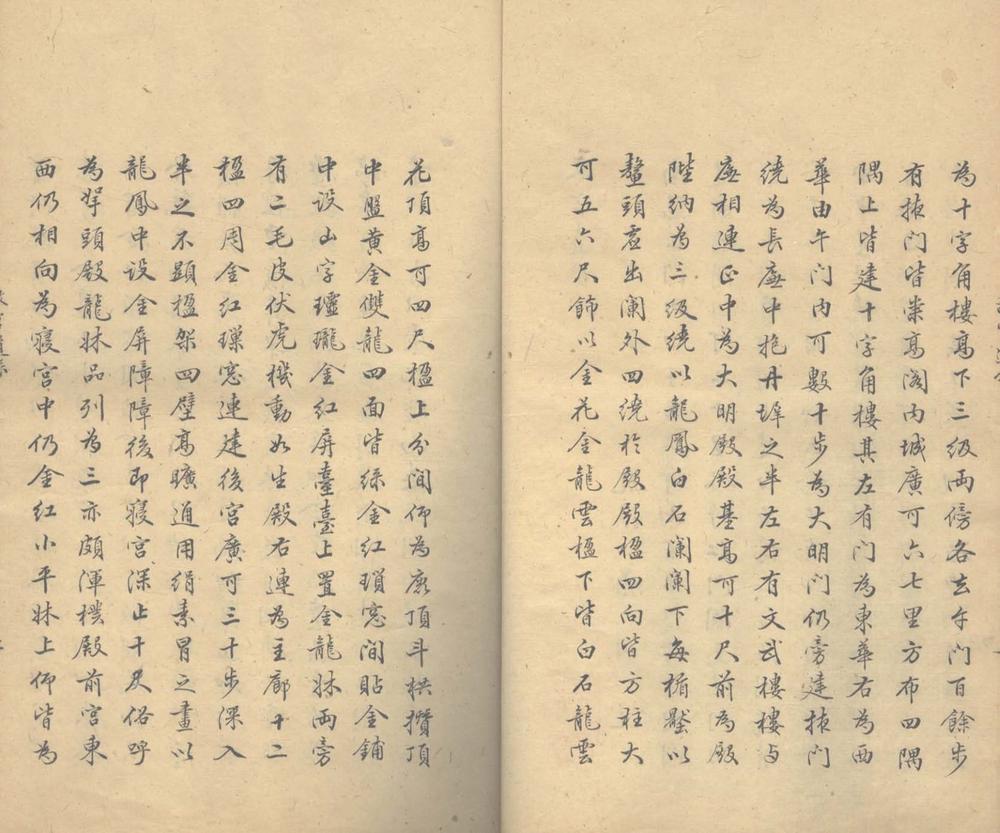 為十字角樓高下三級兩傍各去午門百餘步
有掖門皆崇高閣內城廣可六七里方布四隅
隅上皆建十字角樓其左有門為東華右為西
華由午門內可數十步為大明門仍旁建掖門
繞為長廡中抱丹墀之半左右有文武樓樓与
廡相連正中為大明殿殿基高可十尺前為殿
陛納為三級繞以龍鳳白石闌闌下每楯壓以
鰲頭虛出闌外四繞於殿殿楹四向皆方柱大
可五六尺飾以金花金龍雲楹下皆白石龍雲
花頂高可四尺楹上分間仰為鹿頂斗栱攢頂
中盤黃金雙龍四面皆緣金紅瑣窓間貼金鋪
中設山字瓏金紅屏臺臺上置金龍牀兩旁
有二毛皮伏虎機動如生殿右連為主廊十二
楹四周金紅瑣窓連建後宮廣可三十步深入
半之不顯楹架四壁高曠通用絹素冒之畫以
龍鳳中設金屏障障後即寢宮深止十尺俗呼
為拏頭殿龍牀品列為三亦頗渾樸殿前宮東
西仍相向為寢宮中仍金紅小平牀上仰皆為